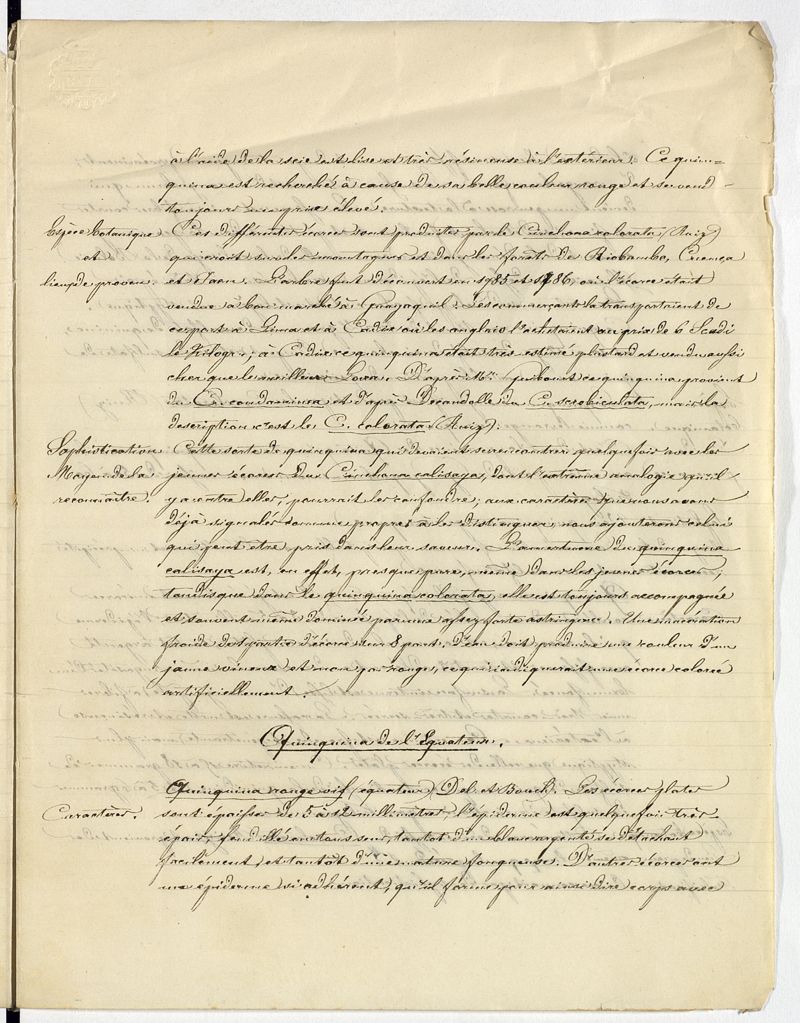 à l'aide de la scie est lisse et très résineuse à l'extérieur. Ce quin=
quina est recherché à cause de sa belle couleur rouge et se vend
toujours un prix élevé.
Espèce botanique
et
lieux de proven.
Ces différentes écorces sont produites par le Cinchona colorata (Ruiz)
qui croît sur les montagnes et dans les forêts de Riobambo, Cuença
et Jaen. L'arbre fut découvert en 1785 et 1786, où l'écorce était
vendue à bon marché à Guayaquil: les commerçants la transportaient de
ce port à Lima et à Cadix où les anglais l'achetaient au prix de 6 Scudi
le Kilogr; à Cadix ce quinquina était très estimé plus tard et vendu aussi
cher que le meilleur Loxa. D'après Mr. Guibourt ce quinquina provient
du C. condaminea et d'après Decandolle du C. scrobiculata, mais la
description c'est le C. colorata (Ruiz).
Sophistication
Moyen de la
reconnaître.
Cette sorte de quinquina qui devient se rencontrer quelquefois avec les
jeunes écorces du Cinchona calisaya, dont l'extrême analogie qu'il
y a entre elles, pourrait les confondre; aux caractères que nous avons
déjà signalés comme propres à les distinguer, nous ajouterons celui
qui peut être pris dans leur saveur. L'amertume du quinquina
calisaya est, en effet, presque pure, même dans les jeunes écorces,
tandis que dans le quinquina colorata, elle est toujours accompagnée
et souvent même dominée par une assez forte astringence. Une macération
froide de 1 partie d'écorce sur 8 part. d'eau doit produire une couleur d'un
jaune vineux et non pas rouge, ce qui indiquerait une écorce colorée
artificiellement.
Quinquina de l'Equateur.
Caractères.
Quinquina rouge vif (équateur) Del. et Bouch. Les écorces plates
sont épaisses de 5 à 12 millimètres, l'épiderme est quelquefois très
épais, fendillé en tous sens, tantôt d'un blanc argenté se détachant
facilement, et tantôt d'une nature fongueuse. D'autres écorces ont
une épiderme si adhérent, qu'il forme pour ainsi dire corps avec